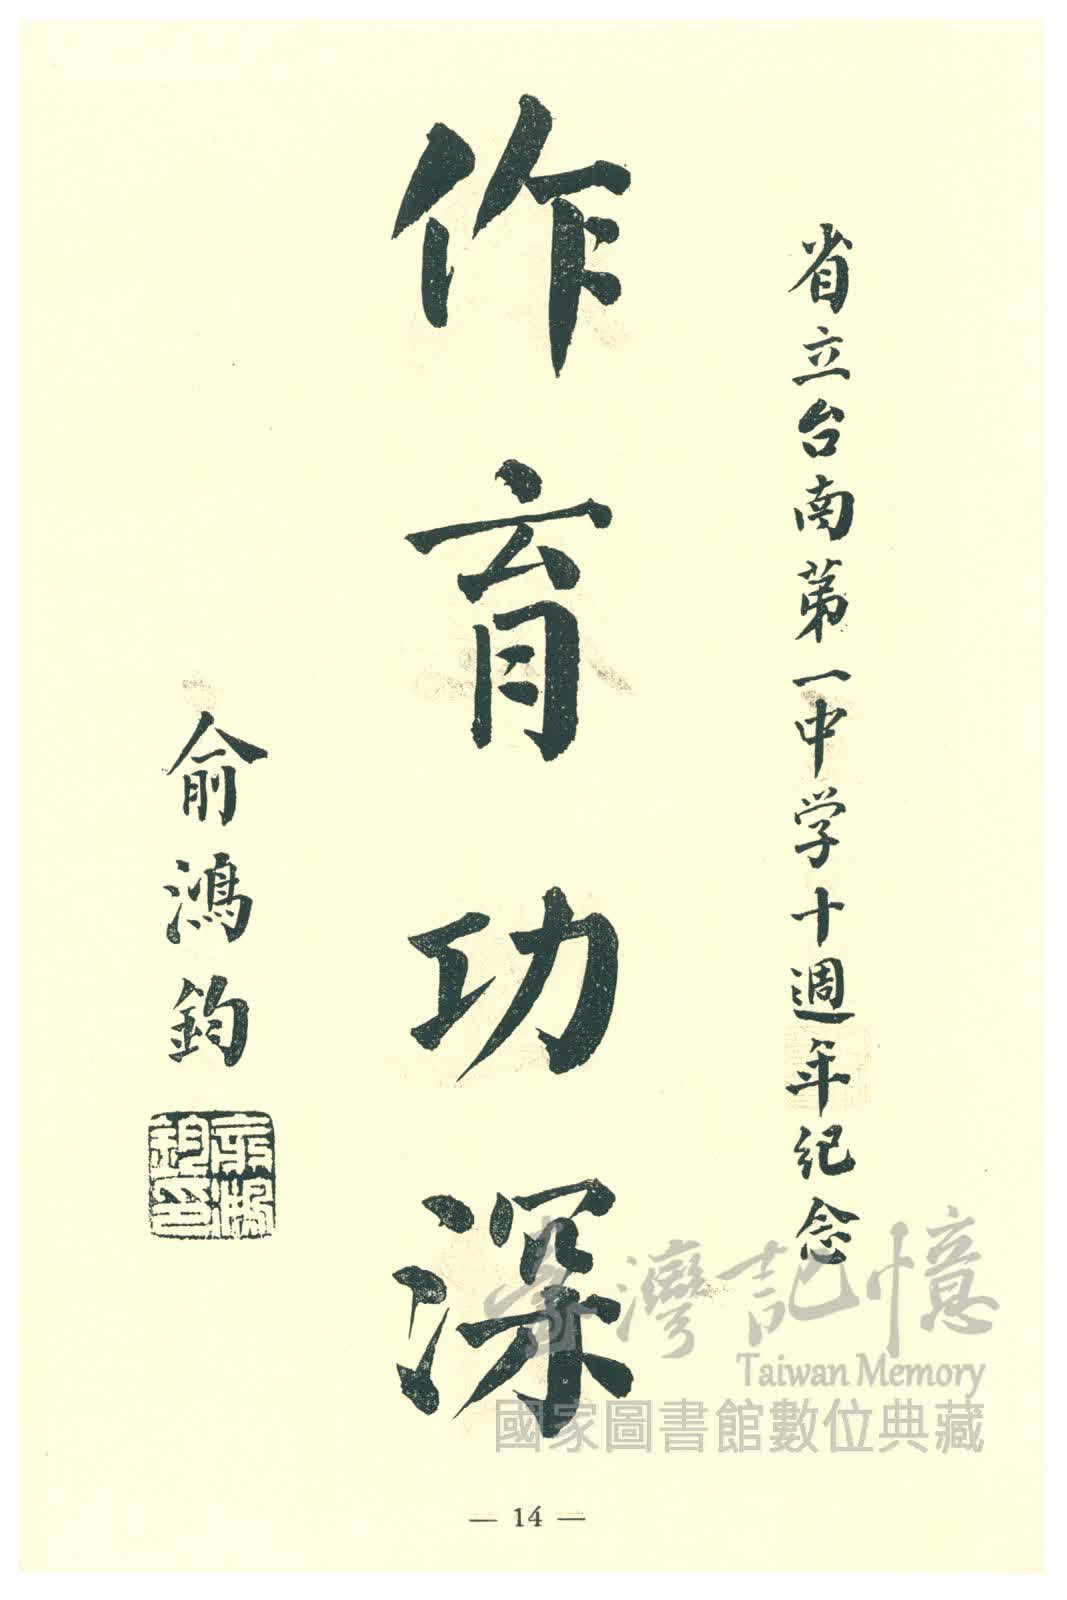 省立台南第一中学十週年纪念
作育功深
俞鴻鈞
臺灣記憶
Taiwan Memory
國家圖書館數位典藏
— 14 —